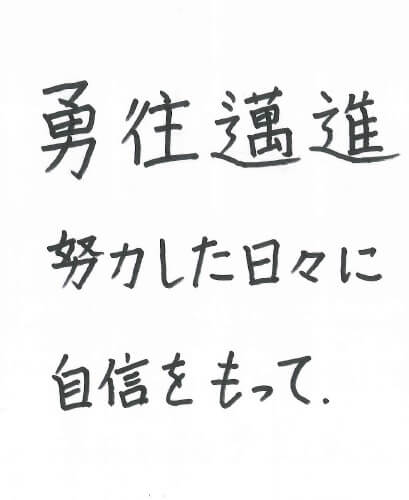 勇往邁進
努力した日々に
自信をもって.